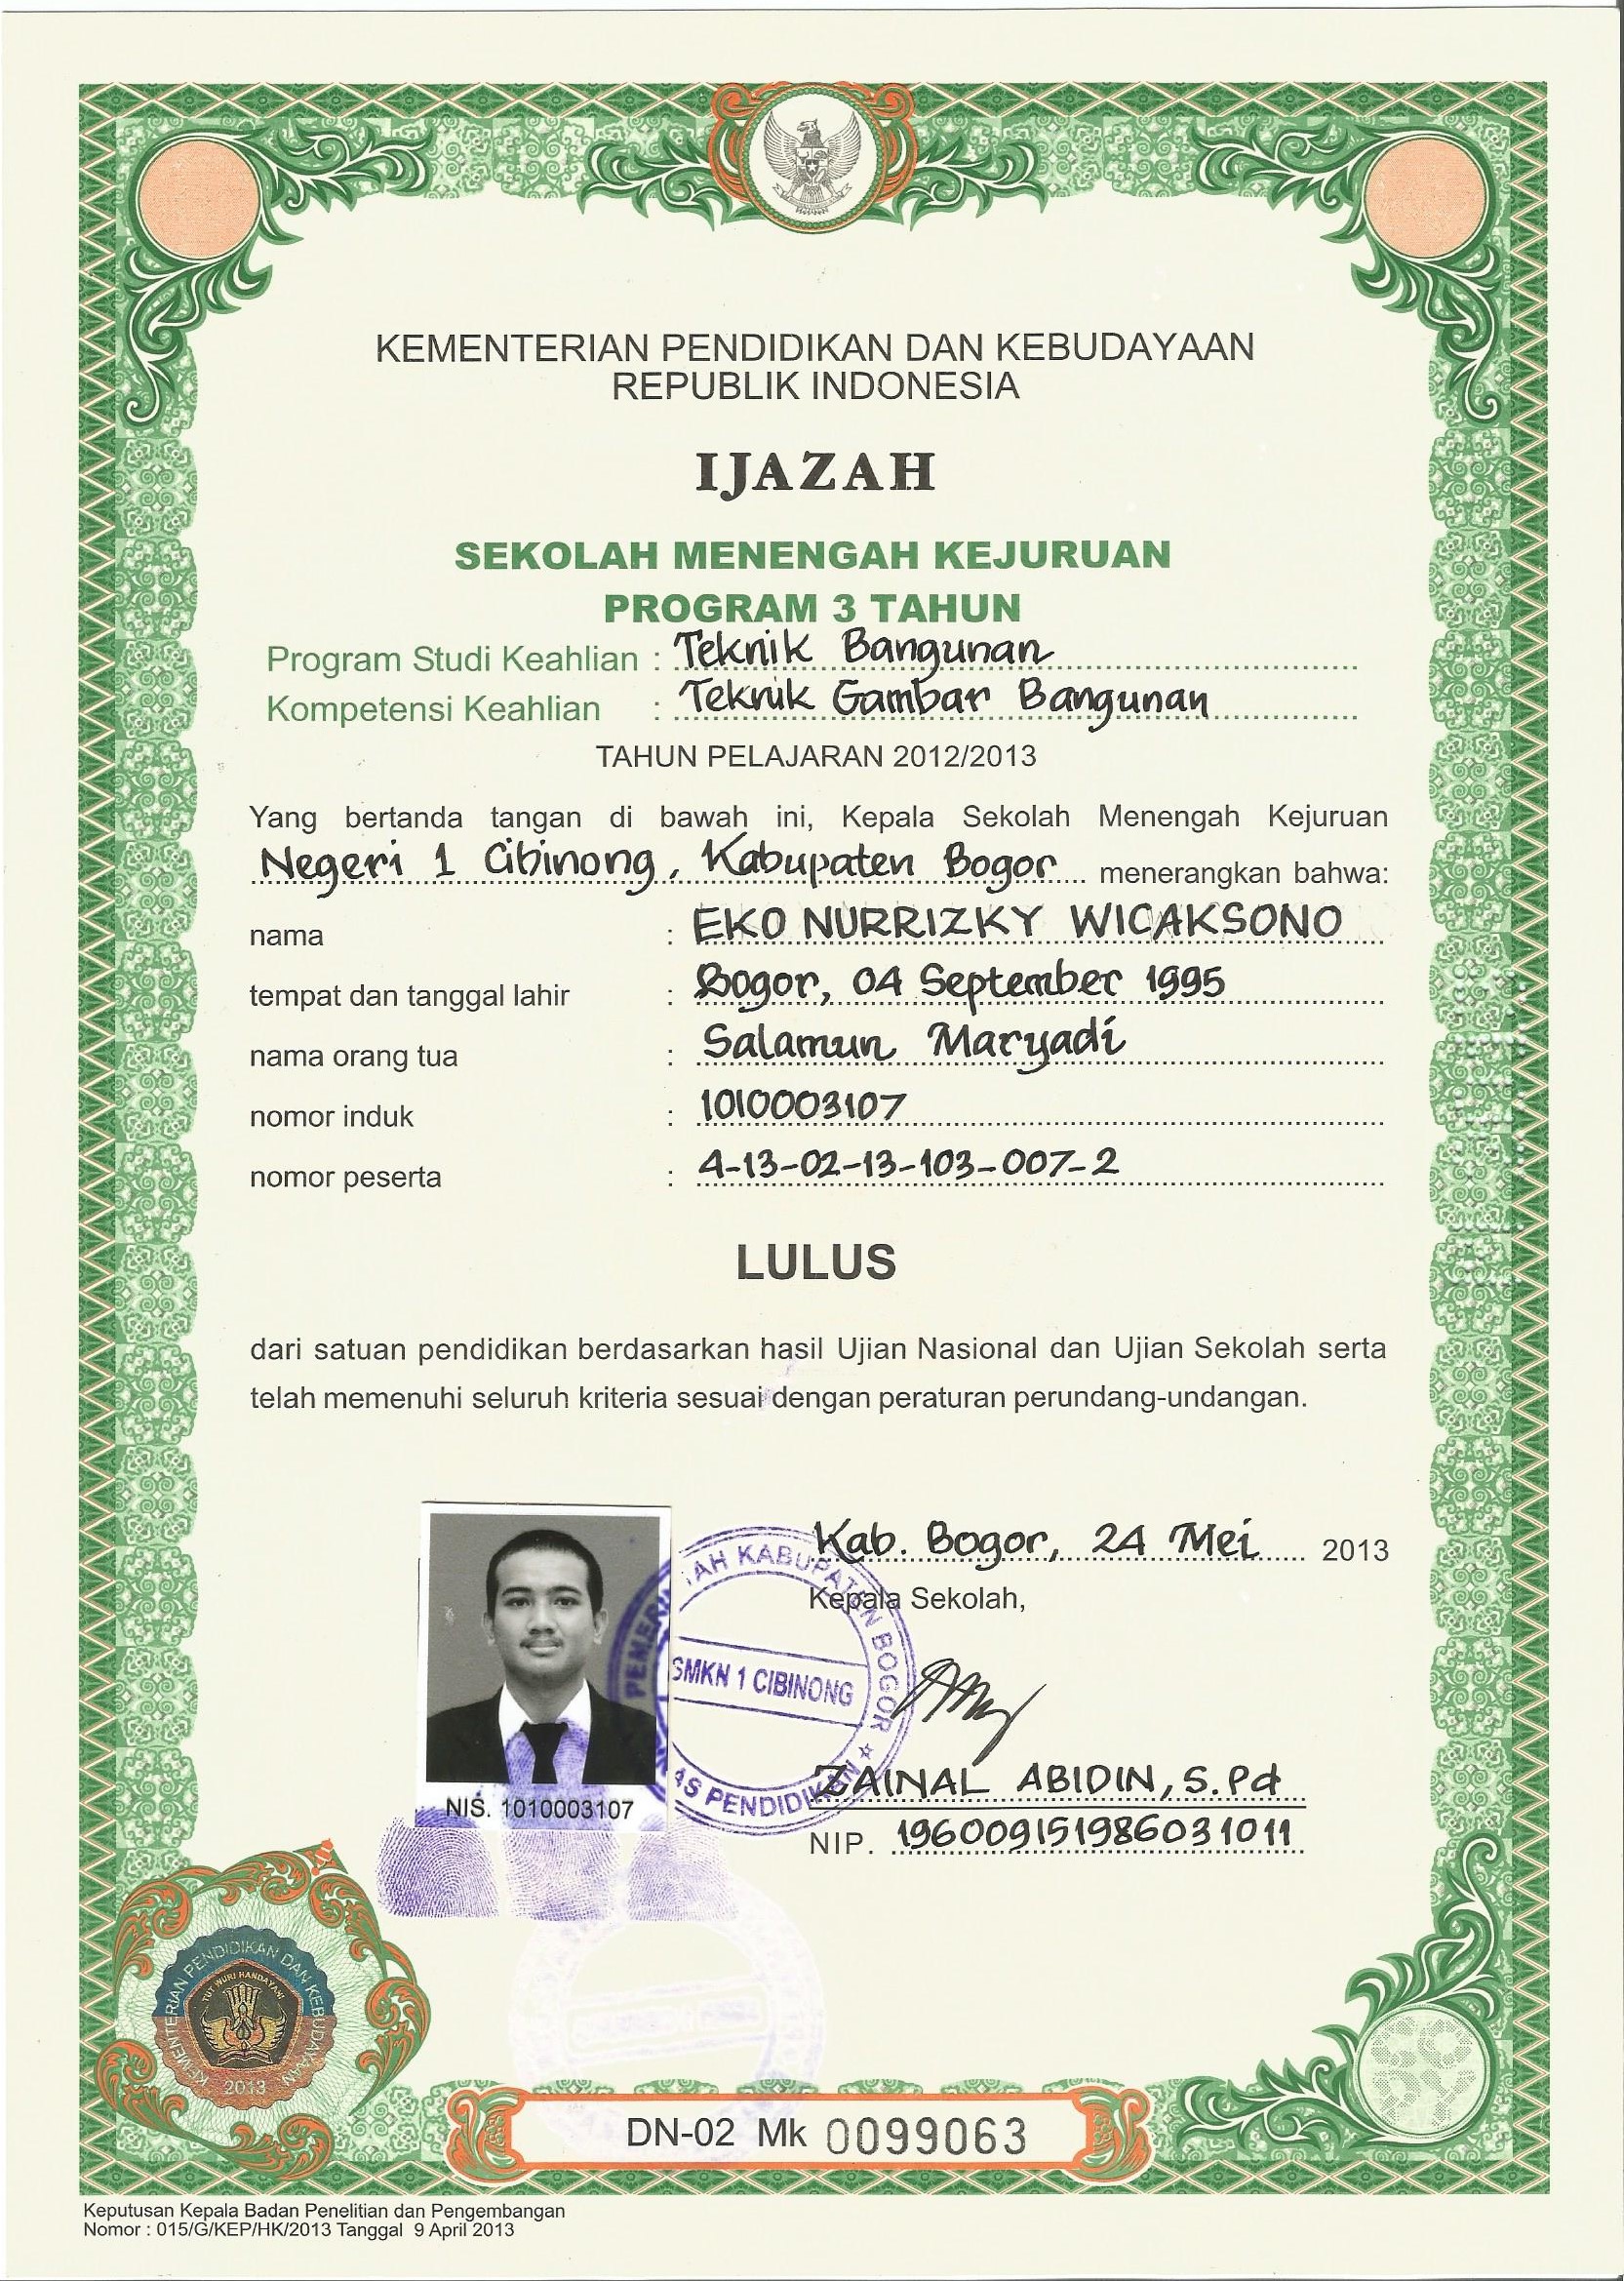 KEMENTERIAN PENDIDIKAN DAN KEBUDAYAAN
REPUBLIK INDONESIA
IJAZAH
SEKOLAH MENENGAH KEJURUAN
PROGRAM 3 TAHUN
Program Studi Keahlian : Teknik Bangunan
Kompetensi Keahlian : Teknik Gambar Bangunan
TAHUN PELAJARAN 2012/2013
Yang bertanda tangan di bawah ini, Kepala Sekolah Menengah Kejuruan
Negeri 1 Cibinong, Kabupaten Bogor menerangkan bahwa:
nama : EKO NURRIZKY WICAKSONO
tempat dan tanggal lahir : Bogor, 04 September 1995
nama orang tua : Salamun Maryadi
nomor induk : 1010003107
nomor peserta : 4-13-02-13-103-007-2
LULUS
dari satuan pendidikan berdasarkan hasil Ujian Nasional dan Ujian Sekolah serta
telah memenuhi seluruh kriteria sesuai dengan peraturan perundang-undangan.
Kab. Bogor, 24 Mei 2013
Kepala Sekolah,
KABUPATEN BOGOR
SMKN 1 CIBINONG
PENDIDIKAN
ZAINAL ABIDIN, S.Pd
NIP. 196009151986031011
NIS. 1010003107
KEMENTERIAN PENDIDIKAN DAN KEBUDAYAAN
TUT WURI HANDAYANI
2013
DN-02 Mk 0099063
Keputusan Kepala Badan Penelitian dan Pengembangan
Nomor : 015/G/KEP/HK/2013 Tanggal 9 April 2013